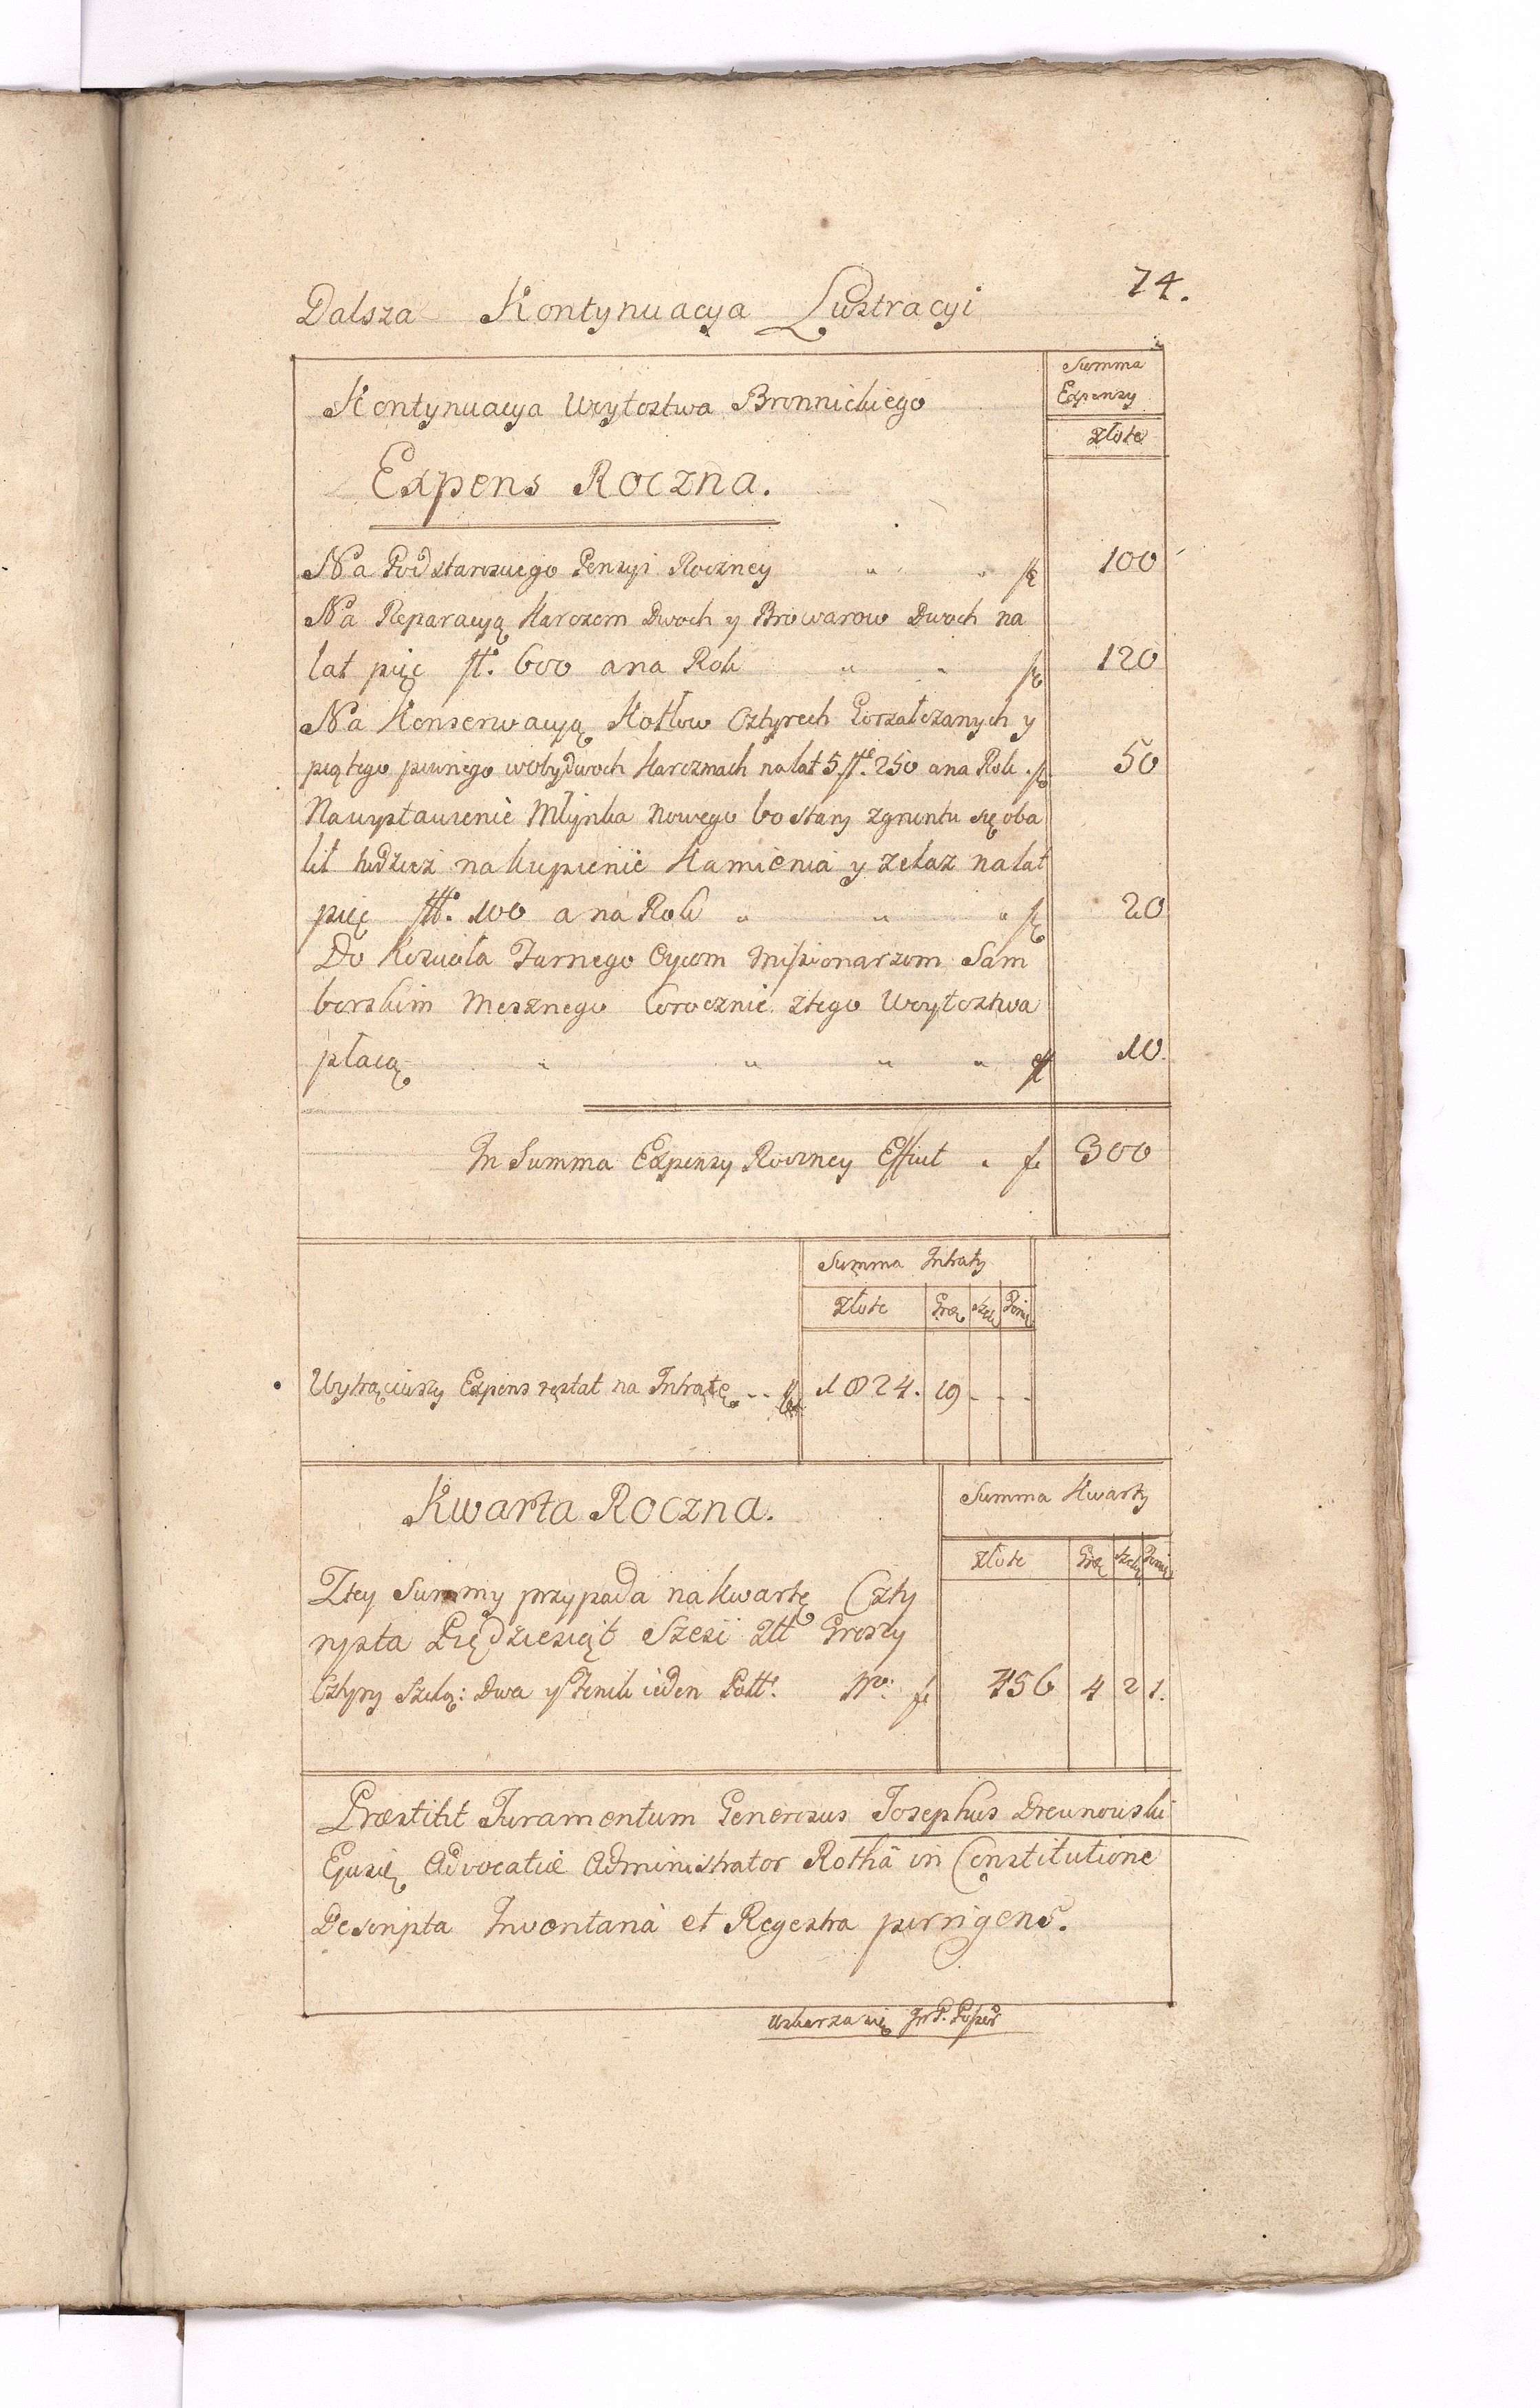 74.
Dalsza Kontynuacya Lustracyi
Summa
Expensy
Złote
Kontynuacya Woytostwa Bronnickiego
Expens Roczna.
Na Podstarosciego Pensyi Roczney " " 100
Na Reparacyą Karczem Dwoch y Browarow Dwoch na
lat pięc fl. 600 a na Rok " " 120
Na Konserwacyą Kotlow Cztyrech Gorzałczanych y
piątego piwnego w obydwoch Karczmach na lat 5. fl. 250 a na Rok . 50
Na wystawienie Młynka Nowego bo stary z gruntu się oba
lił tudziesz na kupienie Kamienia y zelaz na lat
pięc fl. 100 a na Rok " " " 20
Do Koscioła Farnego Oycom Missionarzom Sam
borskim Mesznego Corocznie z tego Woytostwa
płacą " " " " 10.
In Summa Expensy Roczney Efficit 300
Summa Intraty
Złote Gro Szel Pienię
Wytrąciwszy Expens zęstat na Intratę .. 1824. 19 - - -
Kwarta Roczna.
Summa Kwarty
Złote Gro Szelę Pienię
Z tey Summy przypada na kwartę Czty
rysta Pięćdziesiąt Szesć Złł Groszy
Cztyry Szeląg: Dwa y Fenik ieden Poll: 456 4 2 1.
Præstitit Juramentum Generosus Josephus Drewnowski
Ejusdē Advocatiæ Administrator Rothâ in Constitutione
Descripta Inventaria et Regestra porrigens.
Uskarza się